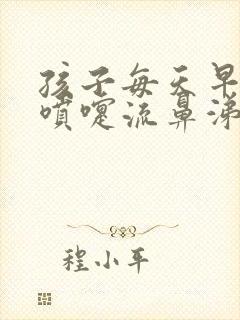 孩子每天早
喷嚏流鼻涕
程小平